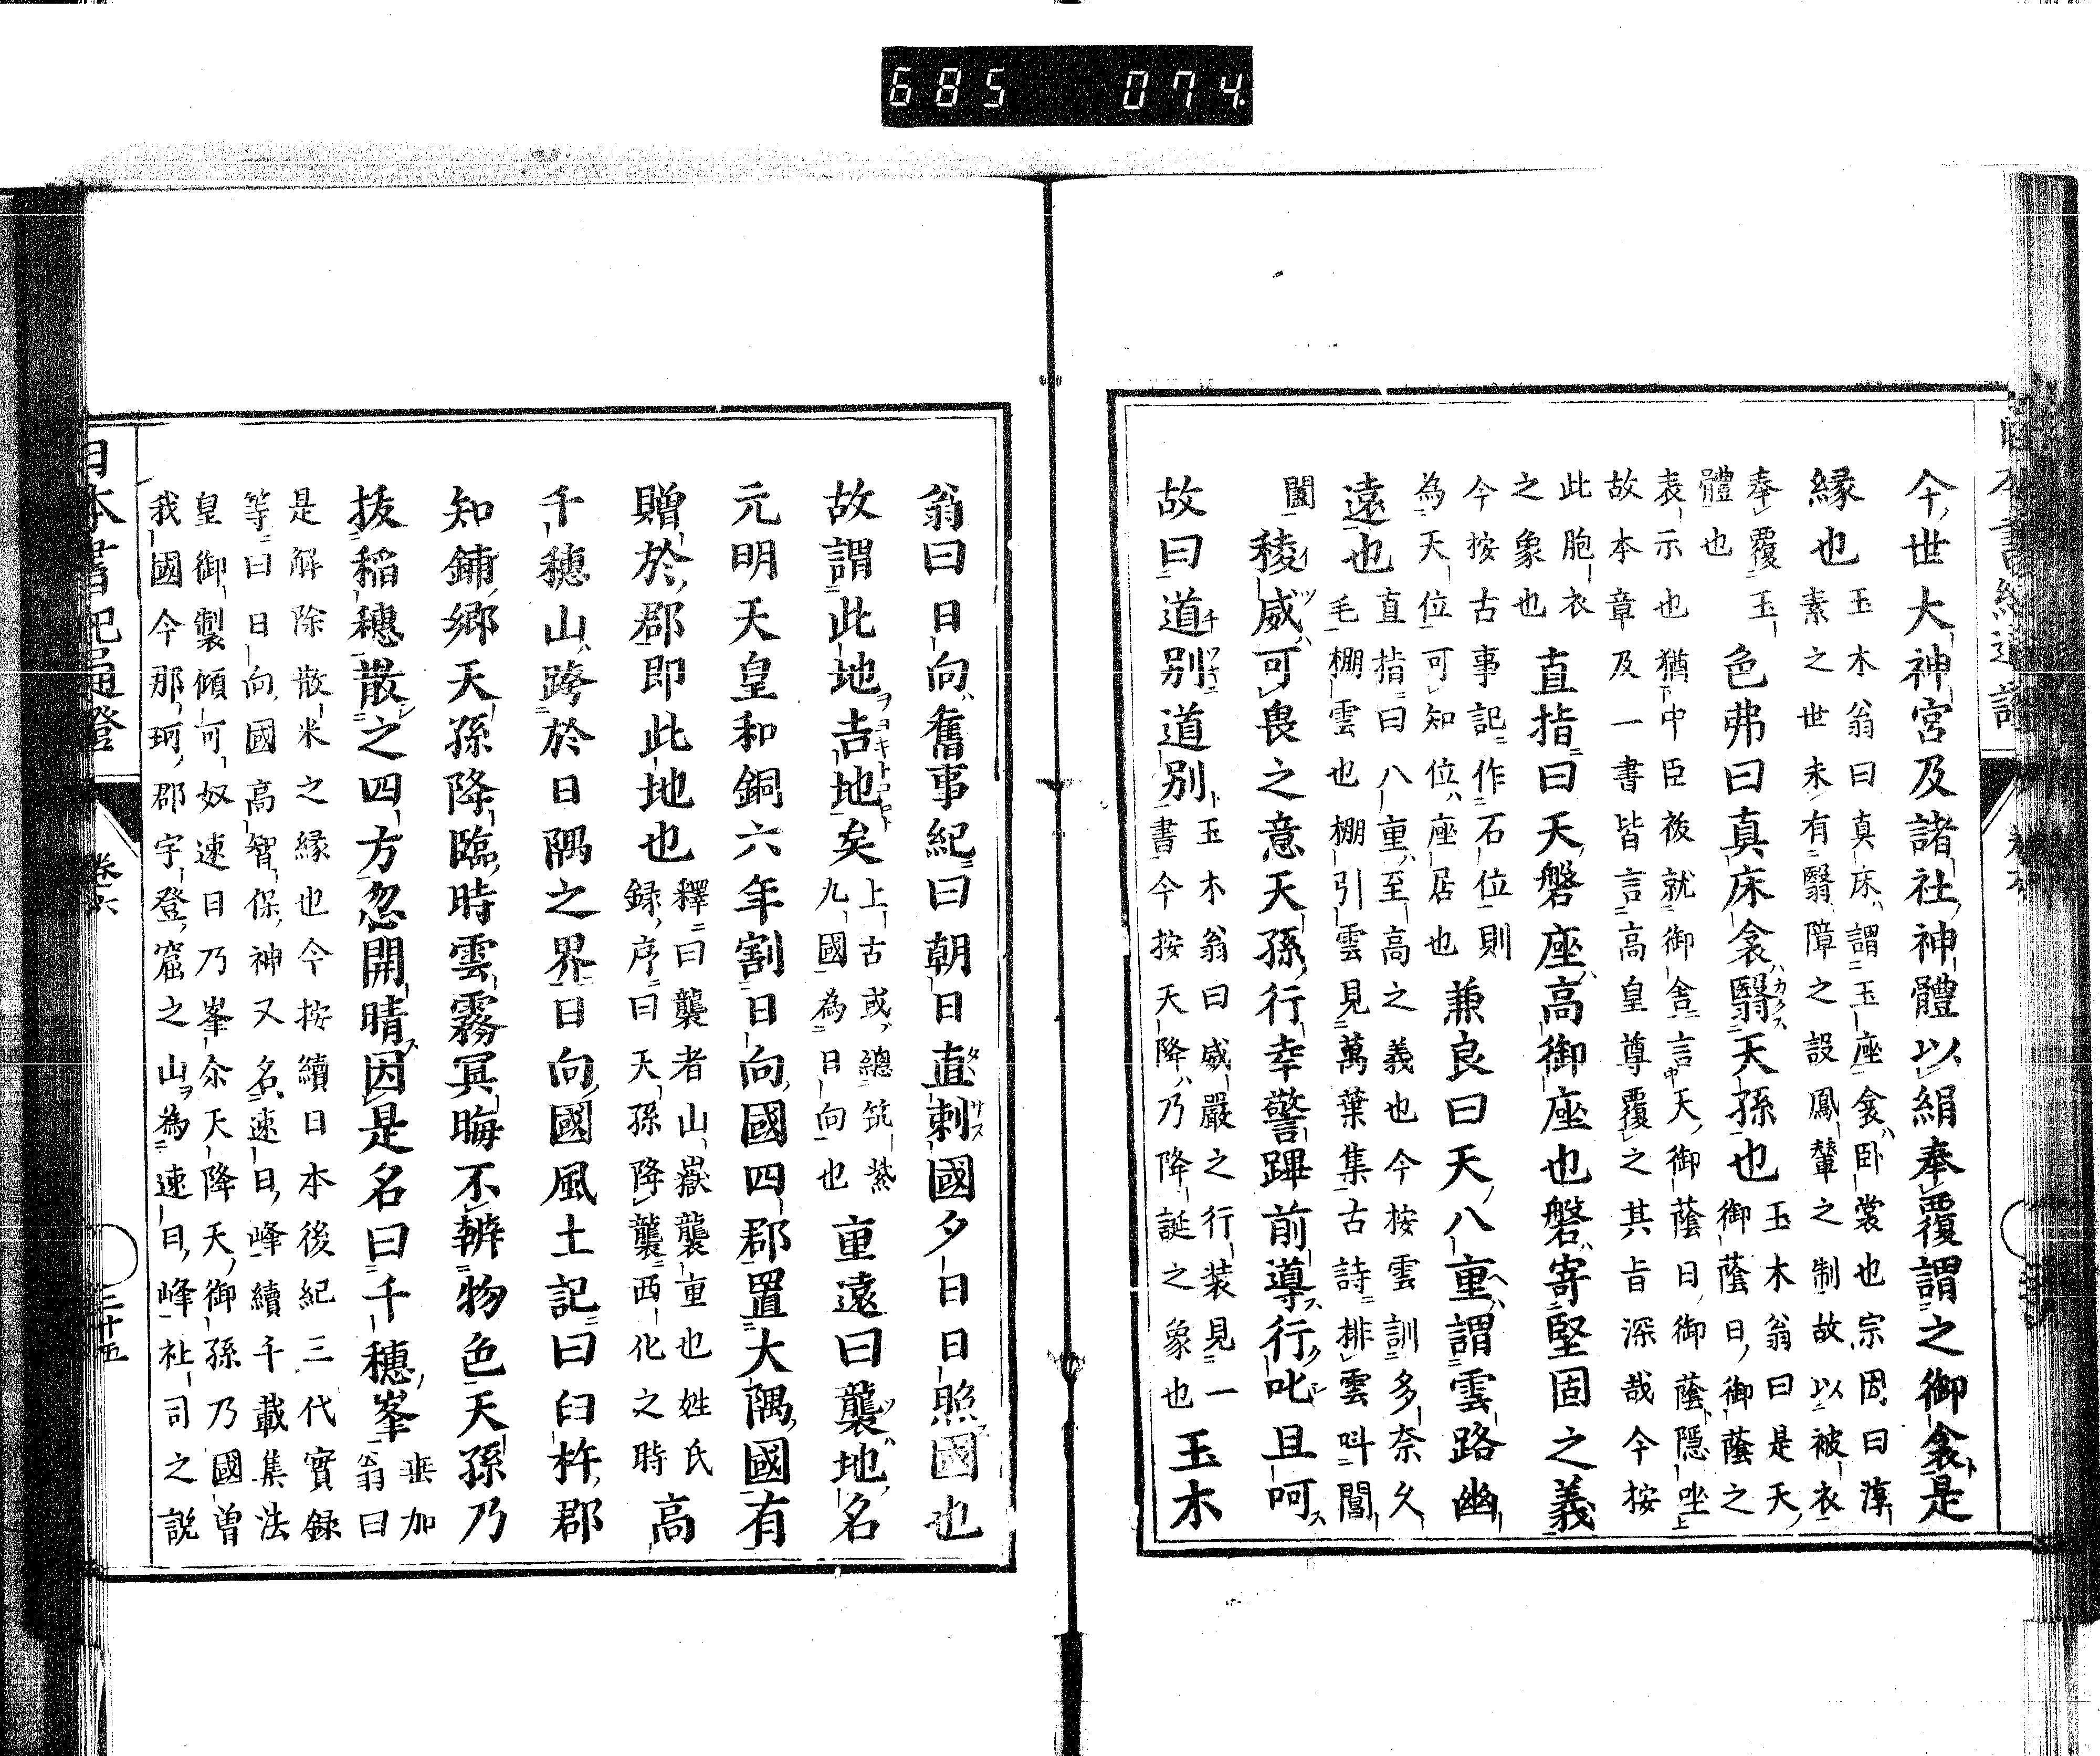 685 074
今世大神宮及諸社神體以絹奉覆謂之御衾是
縁也
玉木翁曰真床謂玉座衾卧裳也宗因曰淳
素之世未有翳障之設鳳輦之制故以被衣
奉覆玉
體也
色弗曰真床衾翳天孫也
玉木翁曰是天
御蔭日御蔭之
表示也猶中臣祓就御舎言天御蔭日御蔭隠坐
故本章及一書皆言高皇尊覆之其旨深哉今按
此胞衣
之象也
直指曰天磐座高御座也磐寄堅固之義
今按古事記作石位則
為天位可知位座居也
兼良曰天八重謂雲路幽
遠也
直指曰八重至高之義也今按雲訓多奈久
毛棚雲也棚引雲見萬葉集古詩排雲叫閶
闔
稜威可畏之意天孫行幸警蹕前導行叱且呵
故曰道別道別
玉木翁曰威嚴之行装見一
書今按天降乃降誕之象也
玉木
翁曰日向舊事紀曰朝日直刺國夕日日照國也
故謂此地吉地矣
上古或總筑紫
九國為日向也
重遠曰襲地名
元明天皇和銅六年割日向國四郡置大隅國有
贈於郡即此地也
釋曰襲者山嶽襲重也姓氏
録序曰天孫降襲西化之時
高
千穂山跨於日隅之界日向國風土記曰臼杵郡
知鋪郷天孫降臨時雲霧冥晦不辨物色天孫乃
抜稲穂散之四方忽開晴因是名曰千穂峯
垂加
翁曰
是解除散米之縁也今按續日本後紀三代實録
等曰日向國高智保神又名速日峰續千載集法
皇御製傾可奴速日乃峯尒天降天御孫乃國曽
我國今那珂郡宇登窟之山為速日峰社司之説
日本書紀通證
卷六
三十五